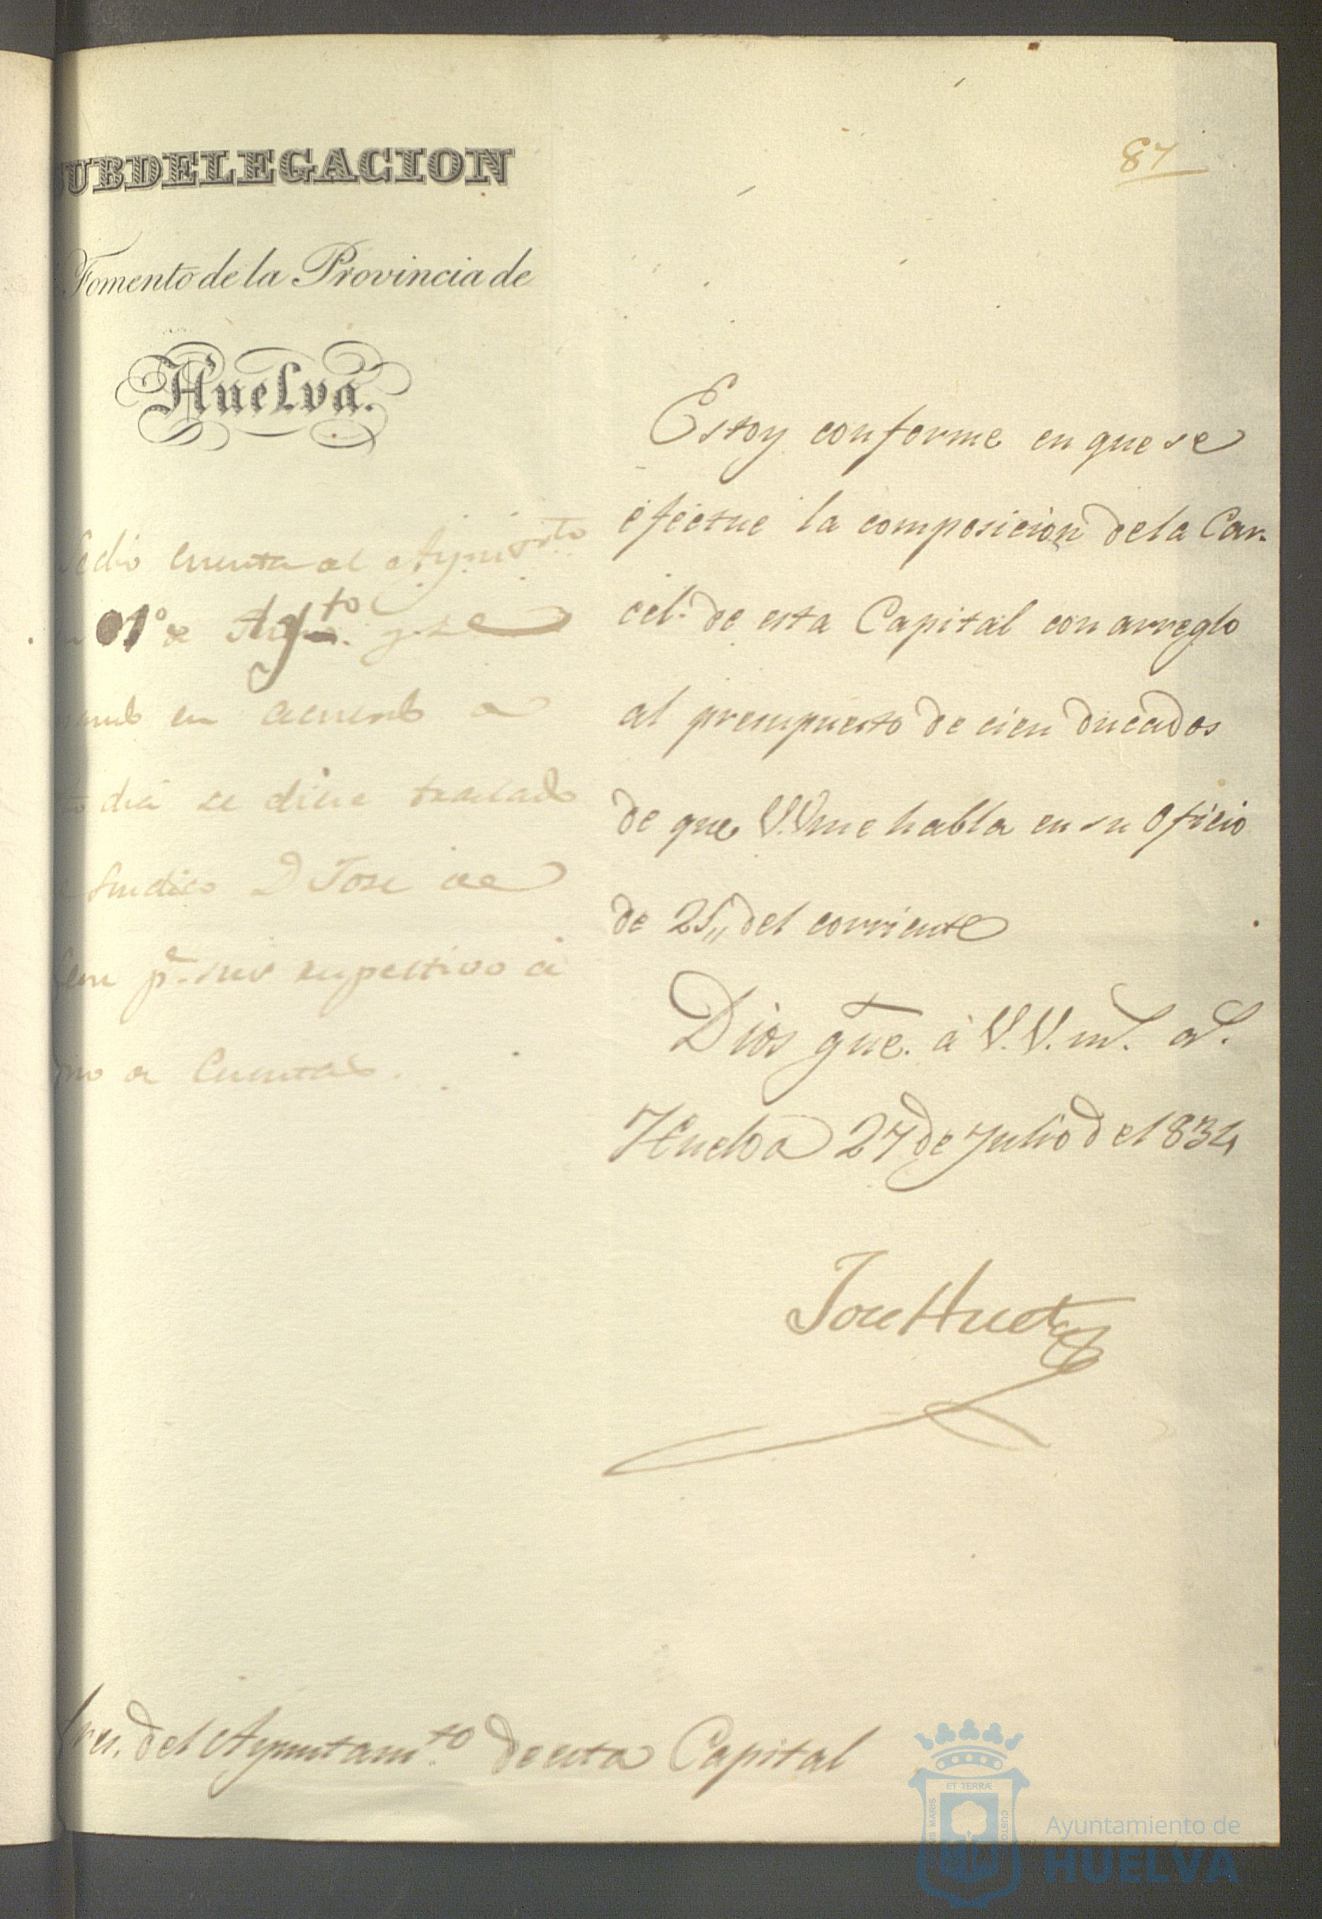 87
UBDELEGACION
Fomento de la Provincia de
Huelva.
Estoy conforme en que se
efectue la composicion de la Car-
cel. de esta Capital con arreglo
al presupuesto de cien ducados
de que V.V. me habla en su Oficio
de 25,, del corriente
Dios gue. á V.V. ms. as.
Huelva 27 de Julio de 1834
Jose Huet
cuenta al
01º de Agto. y se
en acuerdo a
dia se diese traslado
Sindico D Jose de
pa. su respectivo
a Cuentas.
Sres. del Ayuntamto de esta Capital
ET TERRÆ
MARIS
CUSTO
Ayuntamiento de
HUELVA